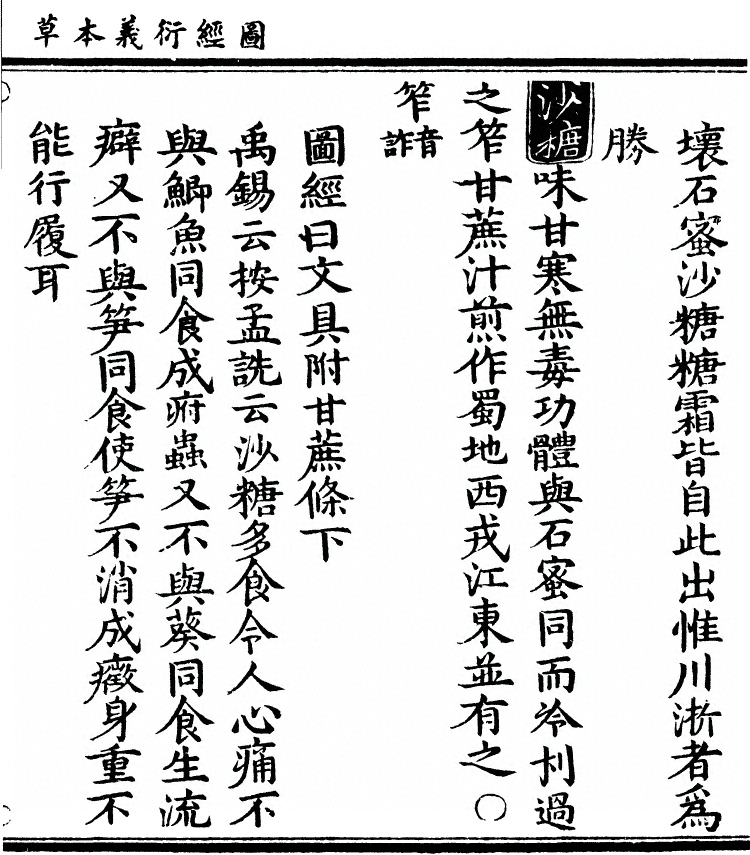 圖經衍義本草
壞石蜜沙糖糖霜皆自此出惟川浙者爲
勝
沙糖味甘寒無毒功體與石蜜同而冷利過
之笮甘蔗汁煎作蜀地西戎江東並有之○
笮音詐
圖經曰文具附甘蔗條下
禹錫云按孟詵云沙糖多食令人心痛不
與鯽魚同食成疳蟲又不與葵同食生流
癖又不與笋同食使笋不消成癥身重不
能行履耳